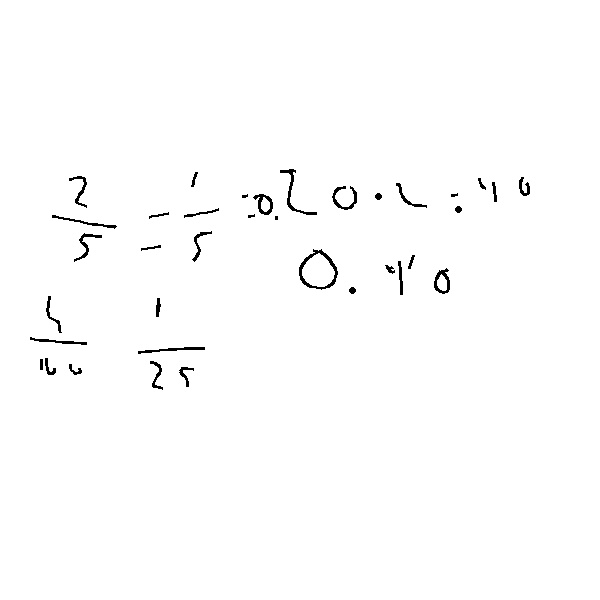 2/5 = 1/5 = 0.20 · 2 = .40
0.40
4/100 1/25